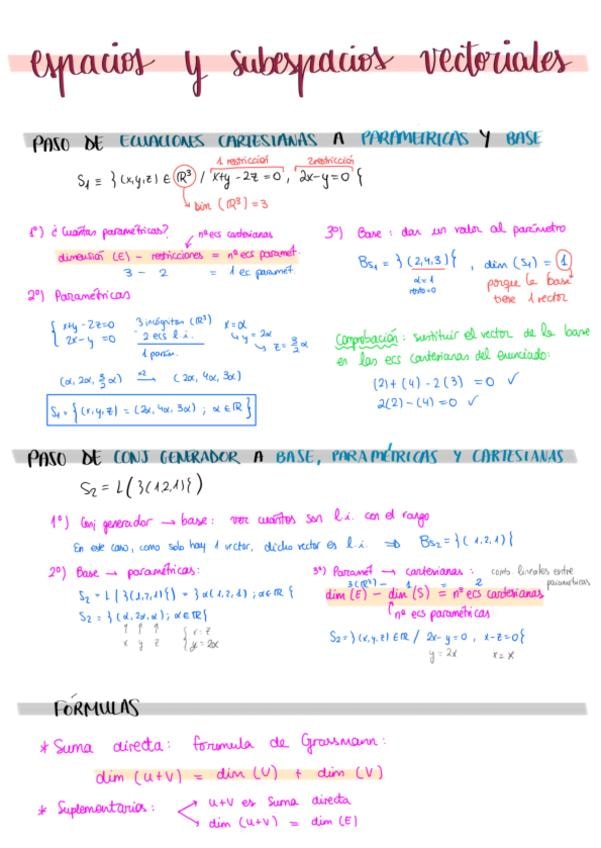 espacios y subespacios vectoriales
PASO DE ECUACIONES CARTESIANAS A PARAMETRICAS Y BASE
1 restricción 2 restricción
S₁ ≡ }(x,y,z) ∈ ℝ³ / x+y-2z=0, 2x-y=0{
Dim (ℝ³) = 3
1º) ¿Cuántas paramétricas? nº ecs cartesianas
dimensión (E) - restricciones = nº ecs paramet.
3 - 2 = 1 ec paramét
2º) Paramétricas
{ x+y-2z=0 3 incógnitas (ℝ³) x=α
2x-y=0 2 ecs l.i. ↳ y=2α
1 parám. ↳ z=3/2 α
(α, 2α, 3/2 α) ×2→ (2α, 4α, 3α)
S₁ = {(x,y,z) = (2α, 4α, 3α) ; α∈ℝ}
3º) Base: dar un valor al parámetro
B_S₁ = }(2,4,3){ , dim (S₁) = 1
α=1
resto=0
porque la base
tiene 1 vector
Comprobación: sustituir el vector de la base
en las ecs cartesianas del enunciado:
(2)+(4)-2(3) =0 ✓
2(2)-(4)=0 ✓
PASO DE CONJ GENERADOR A BASE, PARAMÉTRICAS Y CARTESIANAS
S₂ = L(}(1,2,1){)
1º) Conj generador → base: ver cuántos son l.i. con el rango
En este caso, como solo hay 1 vector, dicho vector es l.i. ⇒ B_S₂ = }(1,2,1){
2º) Base → paramétricas:
S₂ = L(}(1,2,1){) = }α(1,2,1) ; α∈ℝ{
S₂ = }(α, 2α, α) ; α∈ℝ{
↑ ↑ ↑
x y z
{ x=z
y=2x
3º) Paramét → cartesianas: comb. lineales entre
paramétricas
3(ℝ³) - 1 = 2
dim (E) - dim (S) = nº ecs cartesianas
nº ecs paramétricas
S₂=}(x,y,z)∈ℝ / 2x-y=0, x-z=0{
y=2x x=x
FÓRMULAS
* Suma directa: formula de Grassmann:
dim (u+V) = dim (U) + dim (V)
* Suplementarios: u+V es suma directa
dim (u+V) = dim (E)